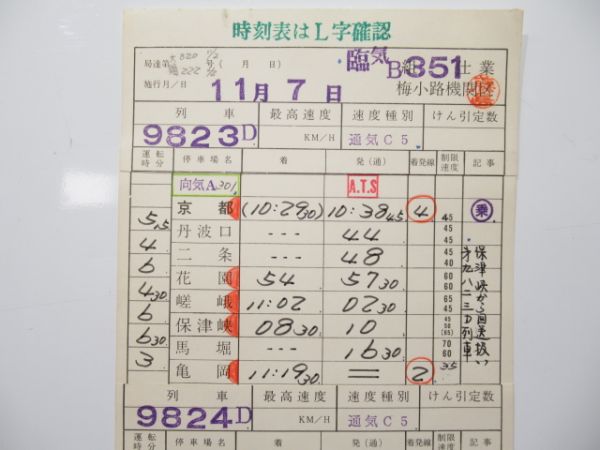 時刻表はL字確認
局達第 号( 月 日)
臨気B351 仕業
施行月/日 11月7日 梅小路機関区
列車 最高速度 速度種別 けん引定数
9823D KM/H 通気C5
運転時分 停車場名 着 発(通) 着発線 制限速度 記事
向気A301 A.T.S
京都 (10:29 30) 10:38 45 4 45 乗
5.5
丹波口 --- 44 45 40
4
二条 --- 48 45 40
6
花園 54 57 30 45 60
4 30
嵯峨 11:02 02 30 45 40
6
保津峡 08 30 10 45 50 (65)
6 30
馬堀 --- 16 30 70 60
3
亀岡 11:19 30 = 2 35
保津峡から回送扱い
才九八二三D列車
列車 最高速度 速度種別 けん引定数
9824D KM/H 通気C5
運転時分 停車場名 着 発(通) 着発線 制限速度 記事